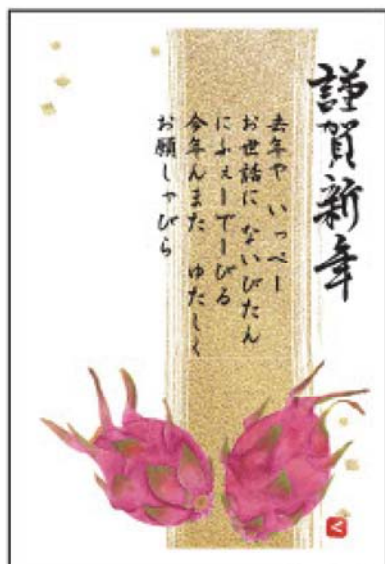 謹賀新年
去年や いっぺー
お世話に ないびたん
にふぇーでーびる
今年んまた ゆたしく
お願しゃびら
く